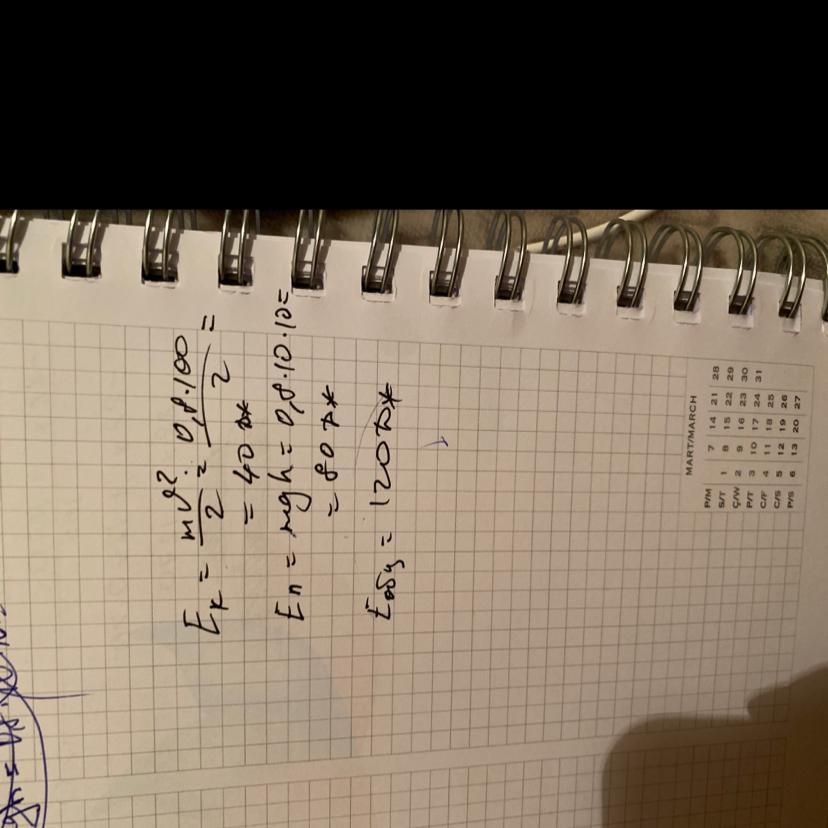 Eк = mv²/2 = 0,8·100/2 =
= 40 Дж
Eп = mgh = 0,8·10·10=
= 80 Дж
Eобщ = 120 Дж
MART/MARCH
P/M 7 14 21 28
S/T 1 8 15 22 29
Ç/W 2 9 16 23 30
P/T 3 10 17 24 31
C/F 4 11 18 25
C/S 5 12 19 26
P/S 6 13 20 27